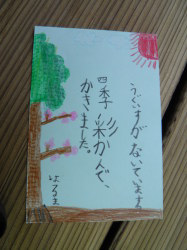 うぐいすがないています
四季彩かんで、
かきました。
はるき